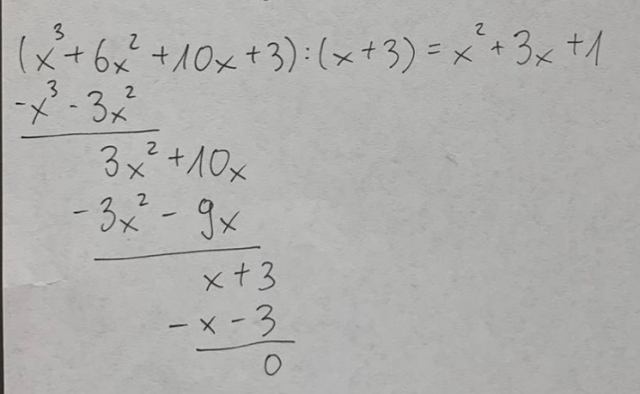 (x³ + 6x² + 10x + 3) : (x + 3) = x² + 3x + 1
-x³ - 3x²
3x² + 10x
-3x² - 9x
x + 3
-x - 3
0